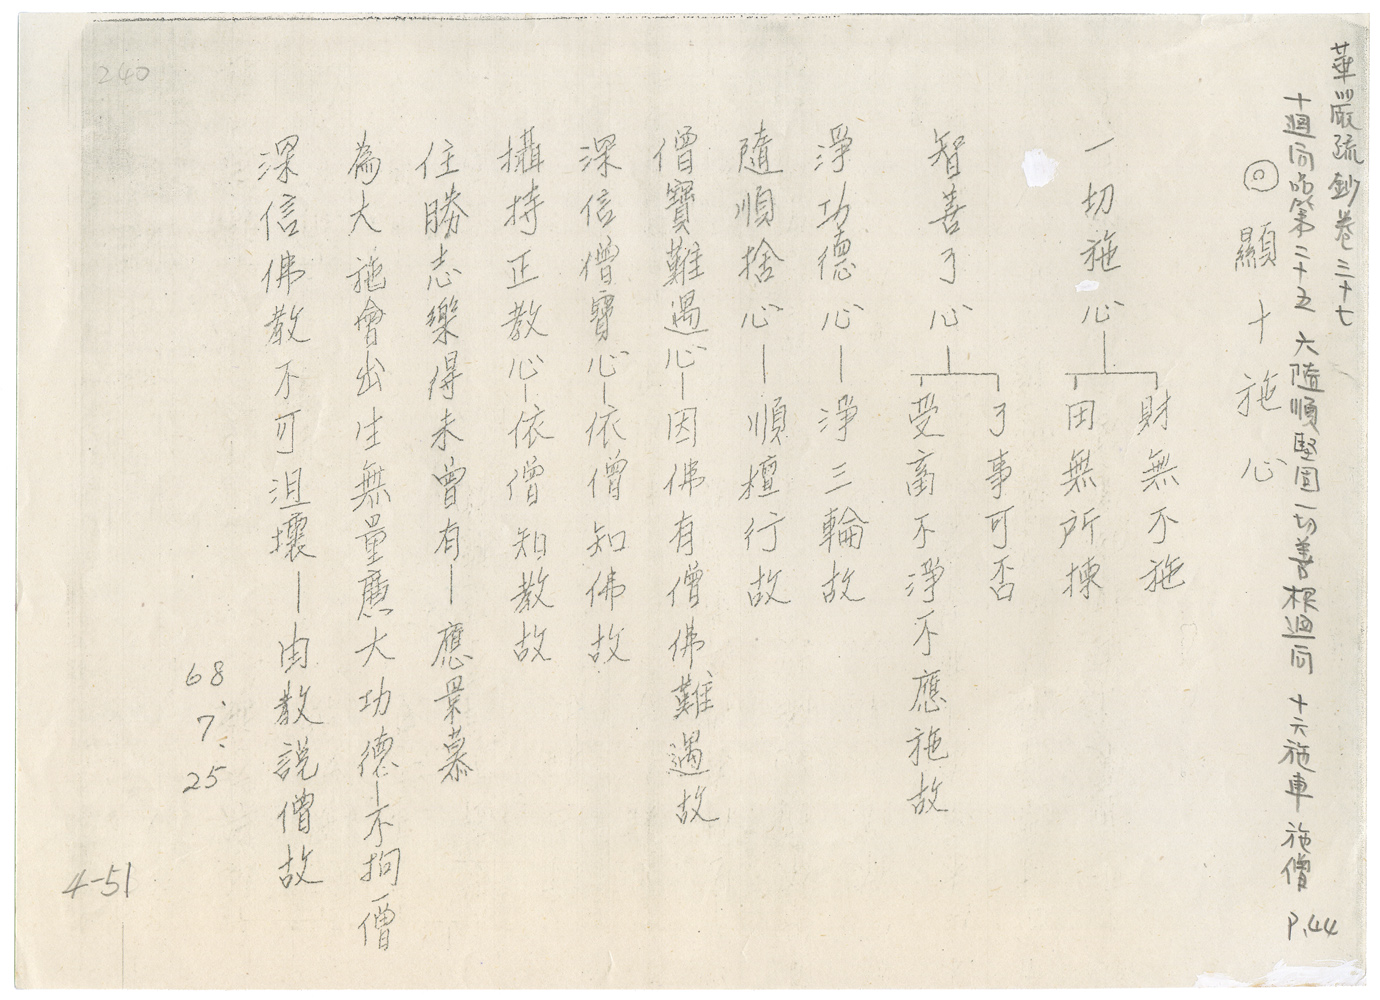 華嚴疏鈔卷三十七
十迴向品第二十五 六隨順堅固一切善根迴向 十六施車施僧 P.44
◎顯十施心
一切施心
財無不施
田無所揀
智善了心
了事可否
受畜不淨不應施故
淨功德心—淨三輪故
隨順捨心—順檀行故
僧寶難遇心—因佛有僧佛難遇故
深信僧寶心—依僧知佛故
攝持正教心—依僧知教故
住勝志樂得未曾有—應景慕
為大施會出生無量廣大功德—不拘一僧
深信佛教不可沮壞—由教説僧故
68.7.25
4-51
240